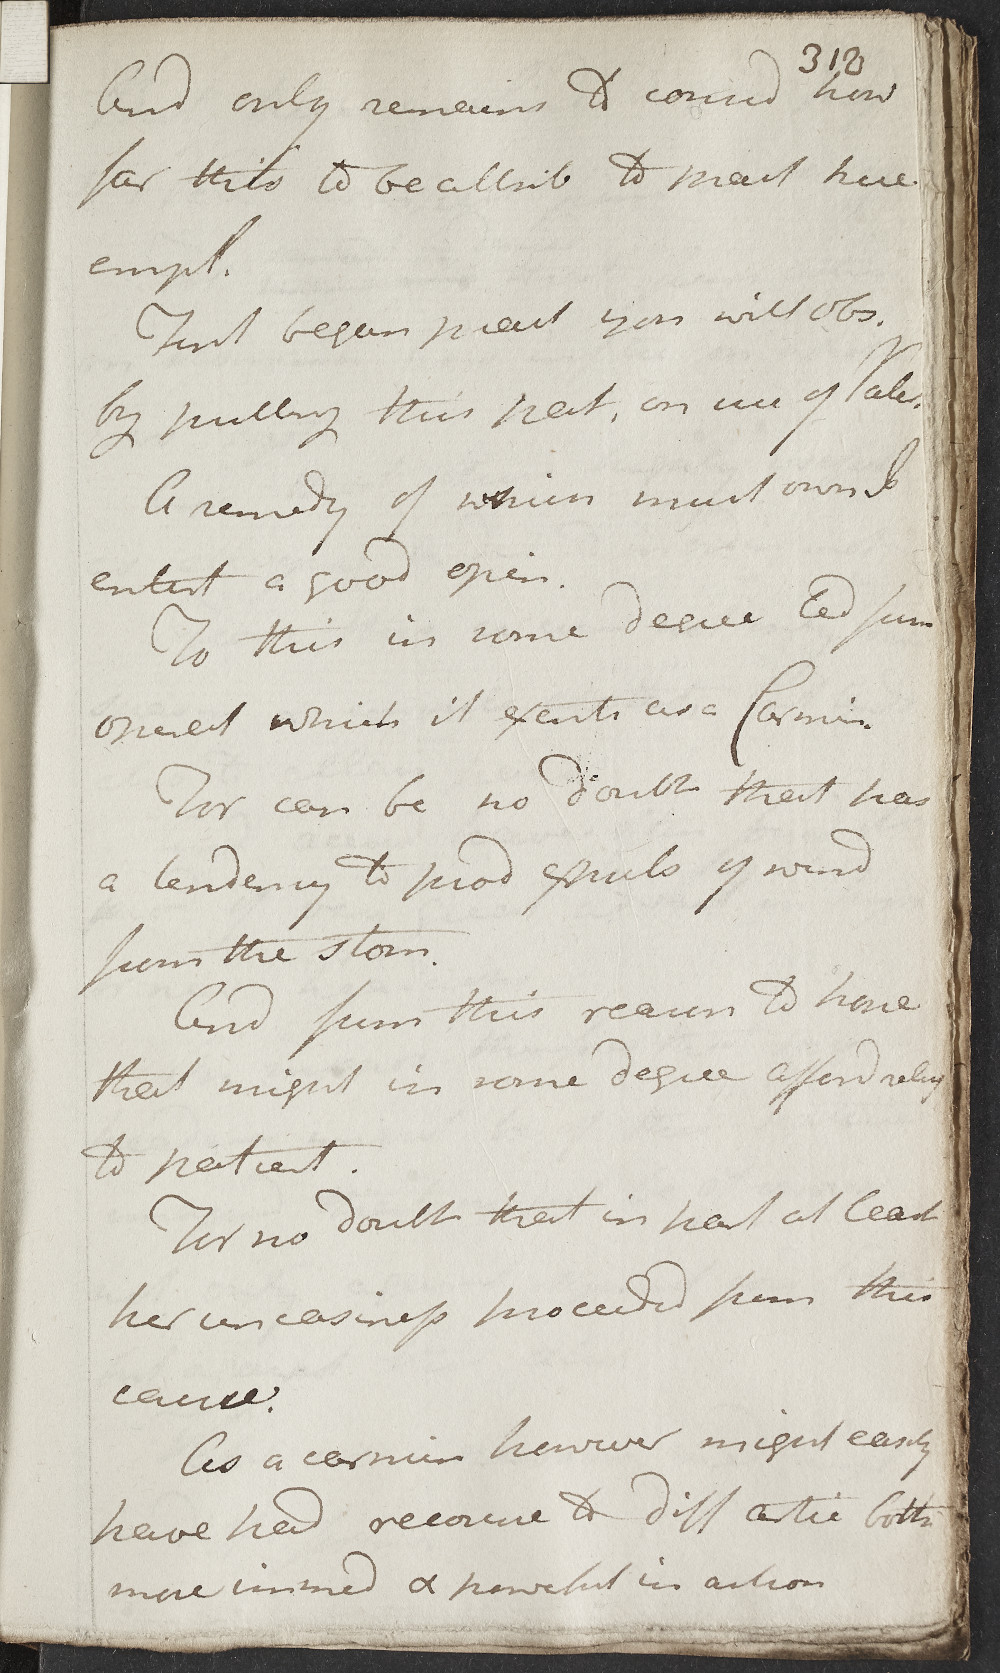 318
And only remains to consid how
far this to be attrib to pract here
empl.
First began pract you will obs.
by putting this pat. on use of Valer.
A remedy of which must own I
entert a good opin.
To this in some degree led from
operat which it exerts as a Carmin.
For can be no doubt that has
a tendency to prod expuls of wind
from the stom.
And from this reason to hope
that might in some degree afford relief
to patient.
For no doubt that in part at least
her uneasiness proceeded from this
cause.
As a carmin however might easily
have had recourse to diff artic both
more immed & powerful in action